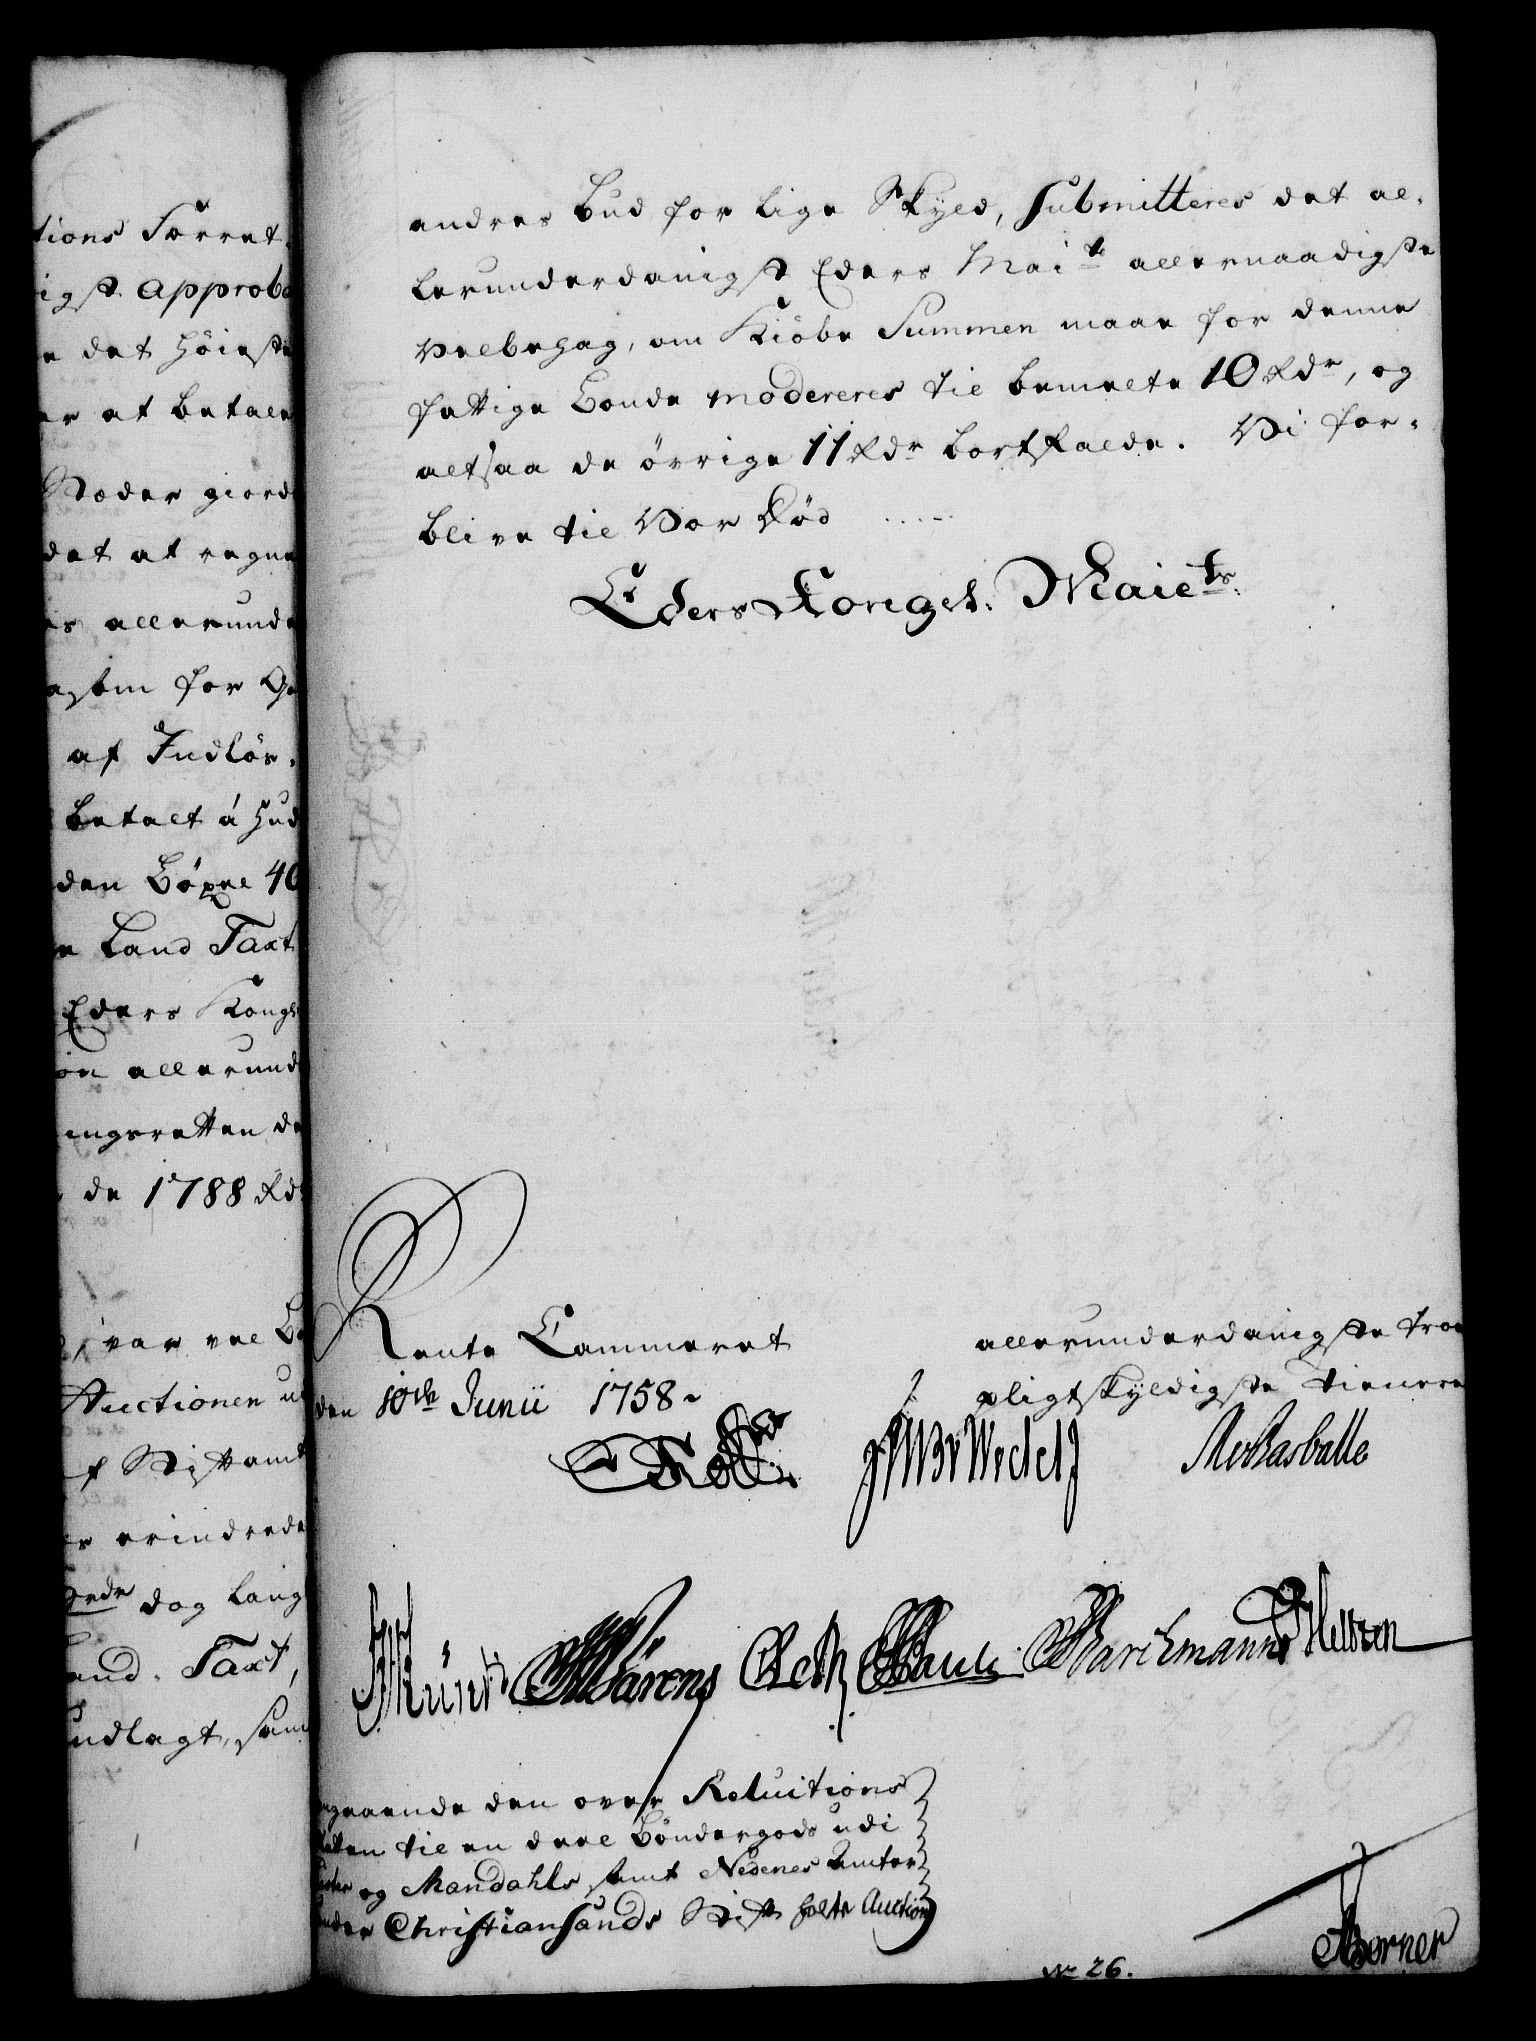 tions Forret-
igst approba
e det höieste
er at betale
Stæder giord
det at regne
es allerunde
af Indlös-
betalt á Hud
den Böxel 40
e Land Taxt
Eders Kongl
on allerund
ingsretten de
de 1788 Rd
var vel Be
Auctionen u
f Stiftamt
er erindrede
dog lang
and. Taxt,
undlagt, sam
andres bud for lige Skyld, submitteres det al-
lerunderdanigst Eders Maits allernaadigste
Velbehag, om Kiöbe Summen maae for denne
fattige Bonde modereres til bemelte 10 Rdr, og
altsaa de övrige 11 Rdr bortfalde. Vi for-
blive til Vor Död .....
Eders Kongel. Maiets.
Rente Cammeret
den 10de Junii 1758.
allerunderdanigste troe
pligtskyldigste Tienere
Wedel
Barchmann
angaaende den over Reluitions
Retten til en deel Böndergods udi
Lister og Mandahls samt Nedenes Amter
under Christiansands Stift holte Auction
No 26.
Berner